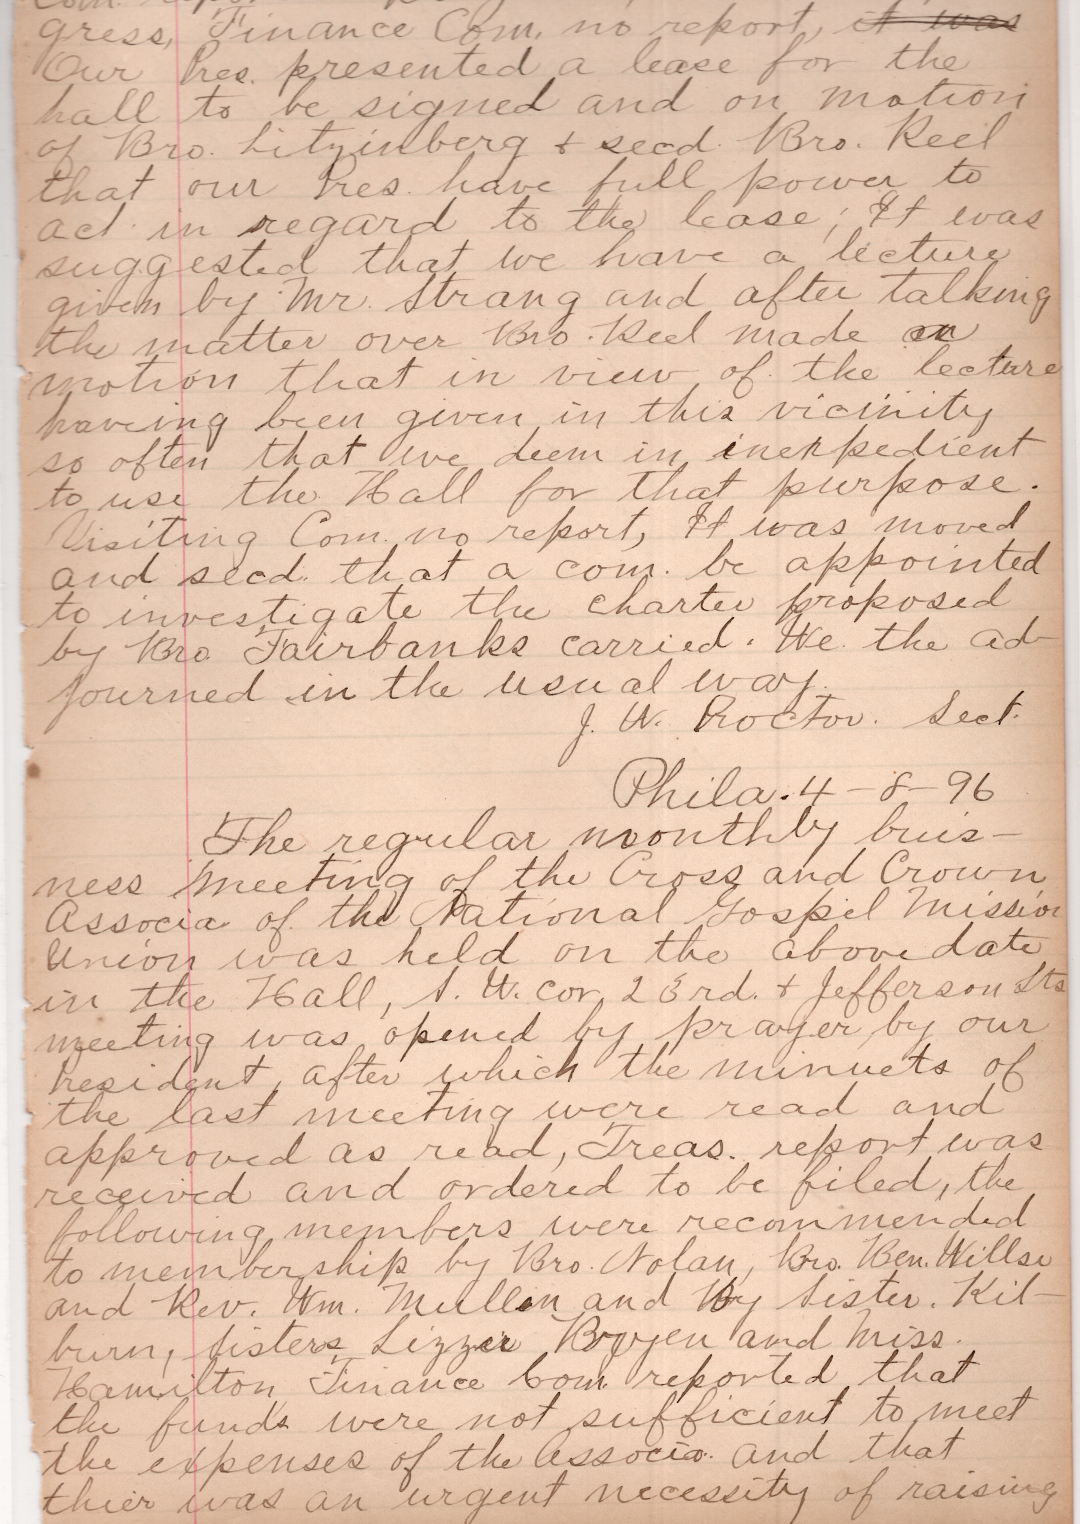 Com. report
gress, Finance Com. no report, it was
Our Pres. presented a lease for the
hall to be signed and on motion
of Bro. Litzinberg & secd. Bro. Keel
that our Pres. have full power to
act in regard to the lease; It was
suggested that we have a lecture
given by Mr. Strang and after talking
the matter over Bro. Keel made an
motion that in view of the lecture
haveing been given in this vicinity
so often that we deem in inexpedient
to use the Hall for that purpose.
Visiting Com. no report, It was moved
and secd. that a com. be appointed
to investigate the charter proposed
by Bro Fairbanks carried. We the ad-
journed in the usual way.
J. W. Proctor. Sect.
Phila. 4-8-96
The regular moonthly buis-
ness meeting of the Cross and Crown
Associa of the National Gospel Mission
Union was held on the above date
in the Hall, S. W. cor, 23rd. & Jefferson Sts
meeting was opened by prayer by our
President, after which the minuets of
the last meeting were read and
approved as read, Treas. report was
received and ordered to be filed, the
following members were recommended
to membership by Bro. Nolan, Bro. Ben. Willse
and Rev. Wm. Mullen and by Sister. Kil-
burn, Sisters Lizzie and Miss.
Hamilton Finance Com. reported that
the funds were not sufficient to meet
the expenses of the Associa. and that
thier was an urgent necessity of raising